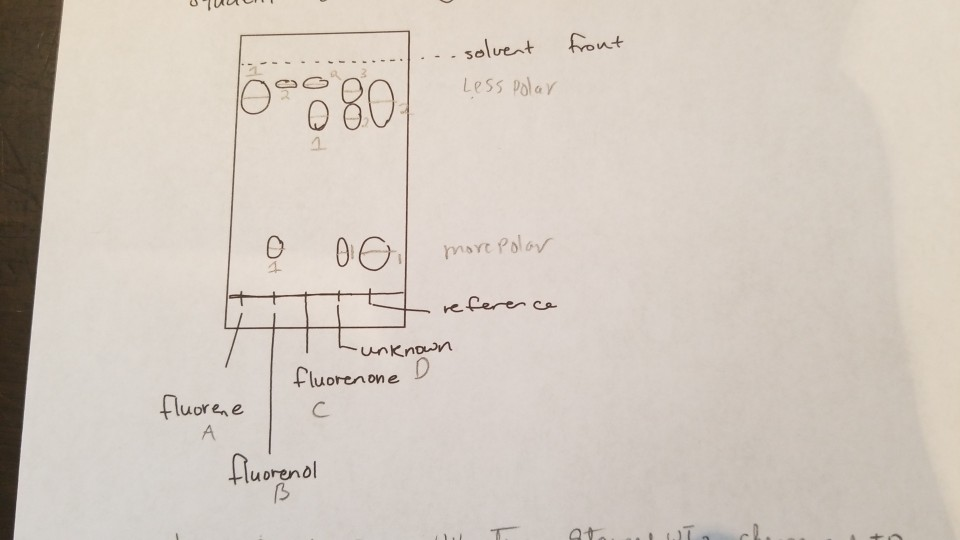 solvent front
1 2 2 3
Less polar
2 2
1
1 1
more polar
1
reference
unknown
D
fluorenone
C
fluorene
A
fluorenol
B